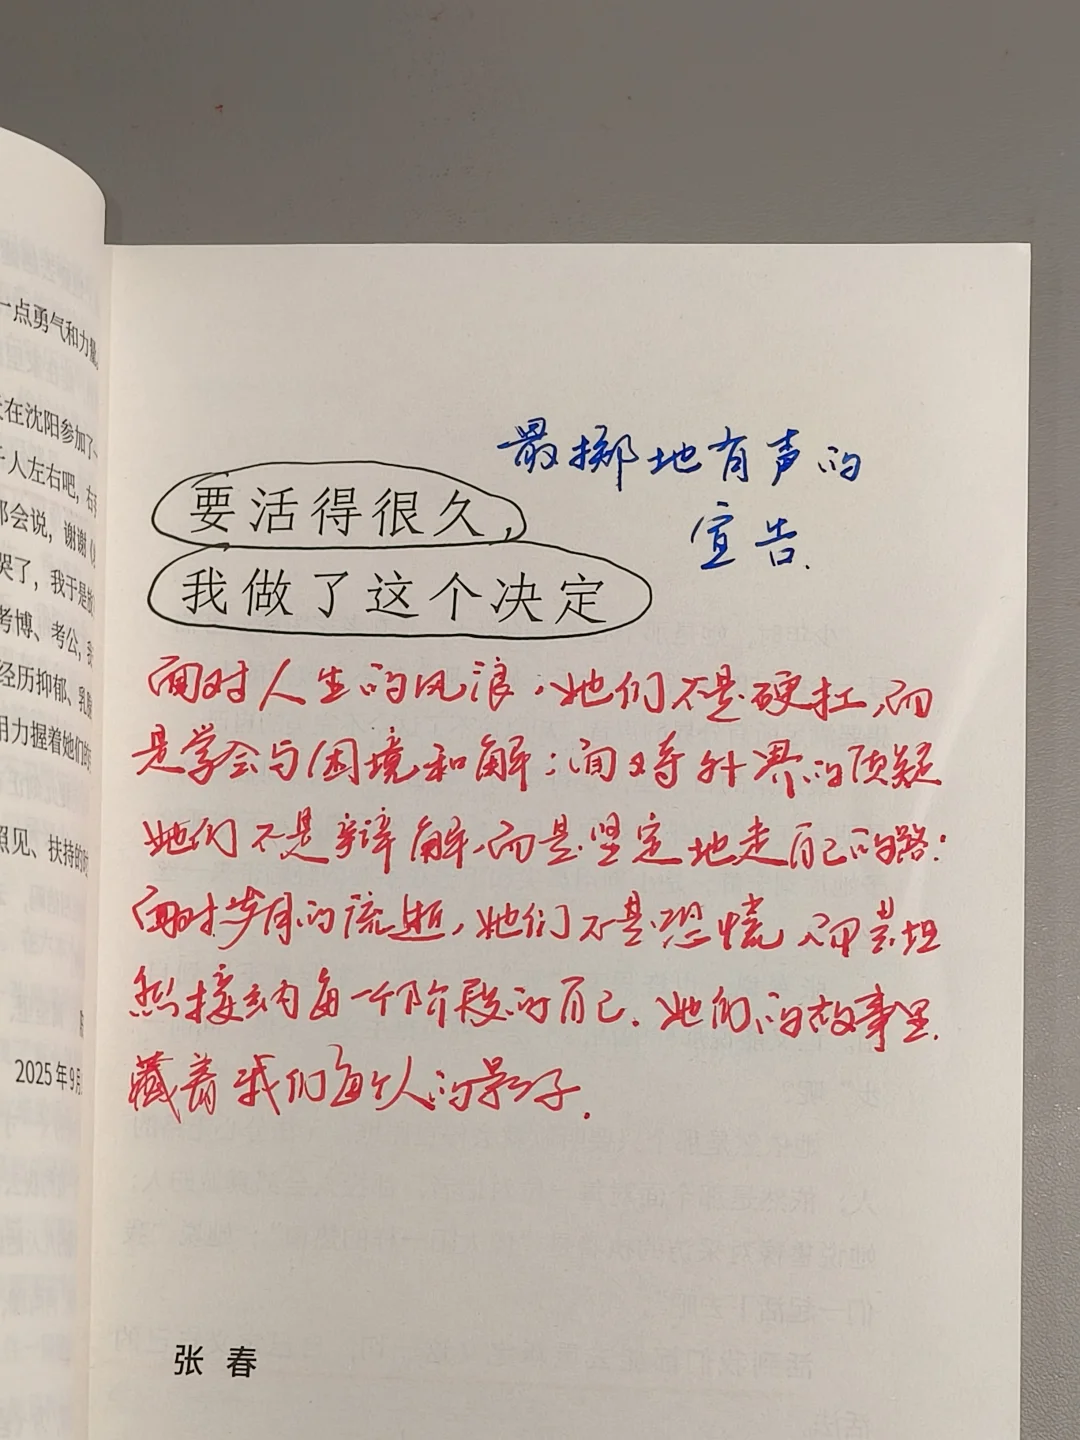 一点勇气和力量
在沈阳参加了
人左右吧，右
都会说，谢谢
哭了，我于是
考博、考公，
经历抑郁、乳腺
用力握着她们的
照见、扶持的
2025年9月
最掷地有声的
宣告.
要活得很久，
我做了这个决定
面对人生的风浪，她们不是硬扛，而
是学会与困境和解；面对外界的质疑
她们不是辩解，而是坚定地走自己的路；
面对岁月的流逝，她们不是恐慌，而是坦
然接纳每一个阶段的自己. 她们的故事里.
藏着我们每个人的影子.
张春